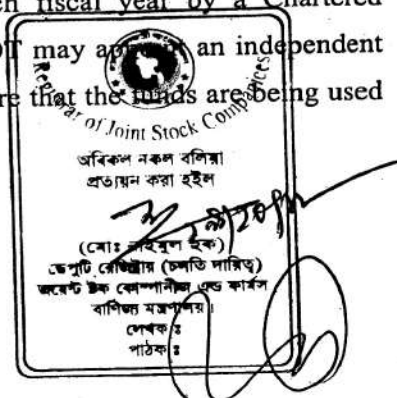 en fiscal year by a Chartered
OT may appoint an independent
re that the funds are being used
Registrar of Joint Stock Companices
অবিকল নকল বলিয়া
প্রত্যয়ন করা হইল
(মোঃ হক)
ডেপুটি রেজিষ্ট্রার (চলতি দায়িত্ব)
জয়েন্ট ষ্টক কোম্পানীজ এন্ড ফার্মস
বাণিজ্য মন্ত্রণালয়।
লেখক ঃ
পাঠক ঃ